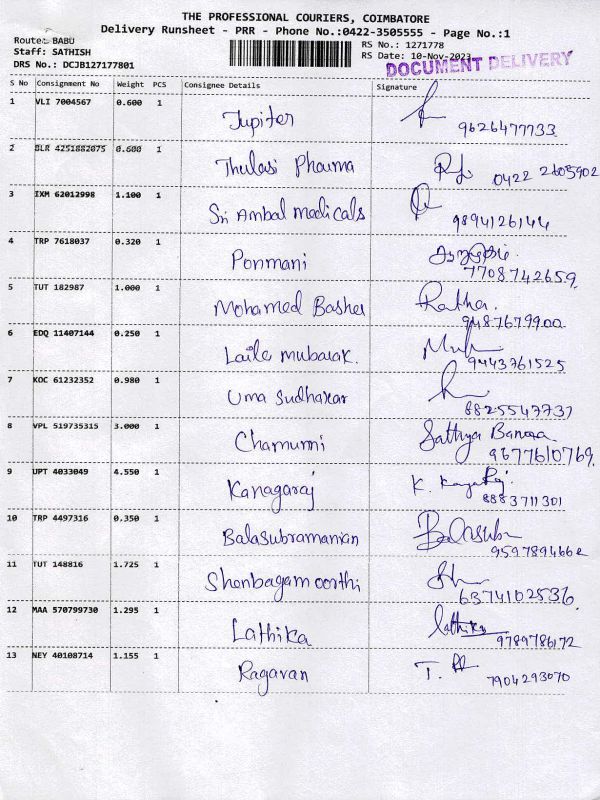 THE PROFESSIONAL COURIERS, COIMBATORE
Delivery Runsheet - PRR - Phone No.:0422-3505555 - Page No.:1
Route: BABU
Staff: SATHISH
DRS No.: DCJB127177801
RS No.: 1271778
RS Date: 10-Nov-2023
DOCUMENT DELIVERY
S No Consignment No Weight PCS Consignee Details Signature
1 VLI 7004567 0.600 1 Jupiter 9626477733
2 BLR 4251882075 0.600 1 Thulasi Pharma 0422 2605902
3 IXM 62012998 1.100 1 Sri Ambal medicals 9894126144
4 TRP 7618037 0.320 1 Ponmani 7708742659
5 TUT 182987 1.000 1 Mohamed Basher Ratha 9487679900
6 EDQ 11407144 0.250 1 Laile mubarak. 9443761525
7 KOC 61232352 0.980 1 Uma sudhakar 8825547737
8 VPL 519735315 3.000 1 Chamunni Sathya 9677610769
9 UPT 4033049 4.550 1 Kanagaraj K. 8883711301
10 TRP 4497316 0.350 1 Balasubramanian Balasubr 9597894662
11 TUT 148816 1.725 1 Shenbagamoorthi 6374102536
12 MAA 570799730 1.295 1 Lathika Lathika 9789786172
13 NEY 40108714 1.155 1 Ragavan T. 7904293070